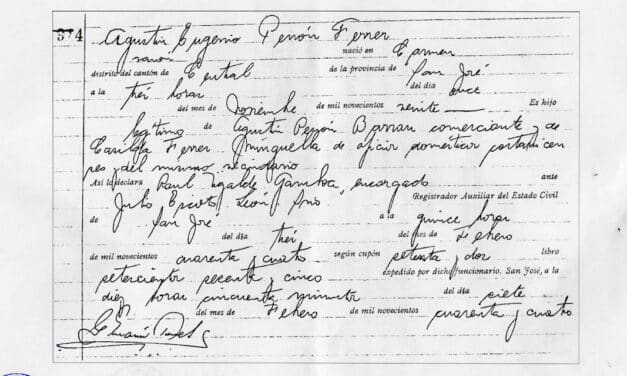 374
Agustín Eugenio Perrón Ferrer
varon nació en Carmen
distrito del cantón de Central de la provincia de San José
a la tres horas del día once
del mes de Noviembre de mil novecientos veinte Es hijo
legítimo de Agustín Perrón Barrau comerciante y de
Casilda Ferrer de oficios domésticos costarricen
ses y del mismo vecindario
Así lo declara Raúl Ugalde Gamboa, encargado ante
Julio Escoto León Srio Registrador Auxiliar del Estado Civil
de San José a la quince horas
del día tres del mes de Febrero
de mil novecientos cuarenta y cuatro según cupón setenta y dos libro
setecientos secenta y cinco expedido por dicho funcionario. San José, a la
diez horas cincuenta minutos del día siete
del mes de Febrero de mil novecientos cuarenta y cuatro